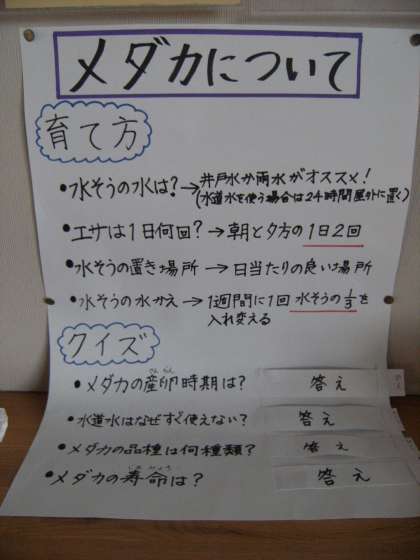 メダカについて
育て方
•水そうの水は?→井戸水か雨水がオススメ!
(水道水を使う場合は24時間屋外に置く)
•エサは1日何回?→朝と夕方の1日2回
•水そうの置き場所→日当たりの良い場所
•水そうの水かえ→1週間に1回 水そうの1/3を
入れ変える
クイズ
•メダカの産卵時期は? 答え
さんらん
•水道水はなぜすぐ使えない? 答え
•メダカの品種は何種類? 答え
•メダカの寿命は? 答え
じゅみょう